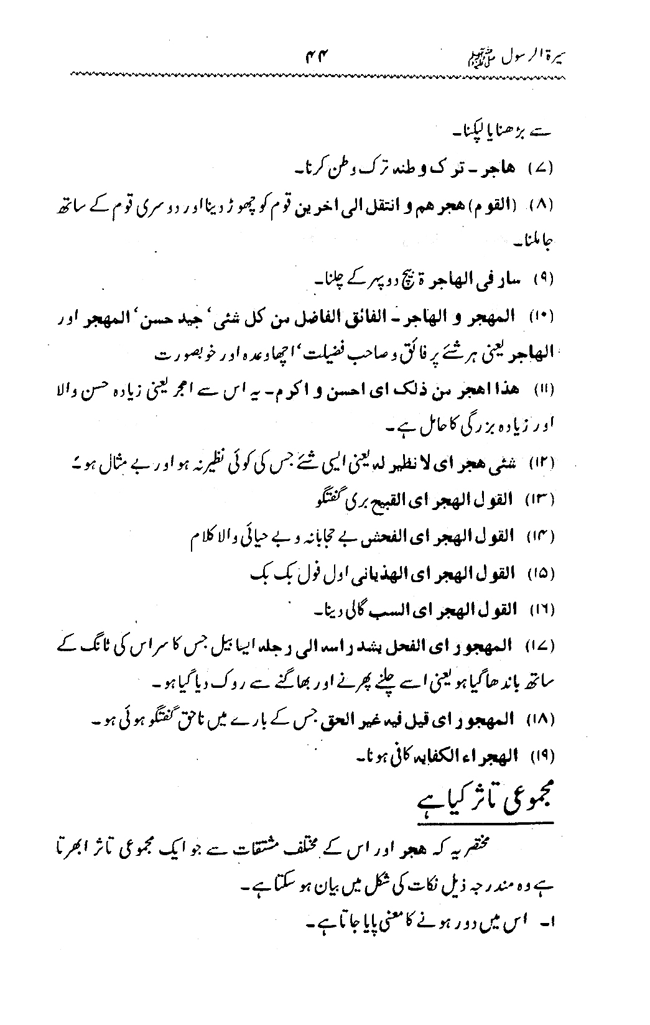 سیرۃ الرسول ﷺ ۴۴
سے بڑھنا یا لپکنا۔
(۷) ھاجر ۔ ترک وطنہ ترک وطن کرنا۔
(۸) (القوم) ھجرھم و انتقل الی اخرین قوم کو چھوڑ دینا اور دوسری قوم کے ساتھ
جا ملنا۔
(۹) سار فی الھاجرۃ بیچ دوپہر کے چلنا۔
(۱۰) المھجر و الھاجر ۔ الفائق الفاضل من کل شئی‘ جید حسن‘ المھجر اور
الھاجر یعنی ہر شئے پر فائق و صاحب فضیلت‘ اچھا وعدہ اور خوبصورت
(۱۱) ھذا اھجر من ذلک ای احسن و اکرم۔ یہ اس سے اھجر یعنی زیادہ حسن والا
اور زیادہ بزرگی کا حامل ہے۔
(۱۲) شئی ھجر ای لا نظیر لہ یعنی ایسی شئے جس کی کوئی نظیر نہ ہو اور بے مثال ہو۔
(۱۳) القول الھجر ای القبیح بری گفتگو
(۱۴) القول الھجر ای الفحش بے حجابانہ و بے حیائی والا کلام
(۱۵) القول الھجر ای الھذیانی اول فول بک بک
(۱۶) القول الھجر ای السب گالی دینا۔
(۱۷) المھجور ای الفحل یشد راسہ الی رجلہ ایسا بیل جس کا سر اس کی ٹانگ کے
ساتھ باندھا گیا ہو یعنی اسے چلنے پھرنے اور بھاگنے سے روک دیا گیا ہو۔
(۱۸) المھجور ای قیل فیہ غیر الحق جس کے بارے میں ناحق گفتگو ہوئی ہو۔
(۱۹) الھجراء الکفایہ کافی ہونا۔
مجموعی تاثر کیا ہے
مختصر یہ کہ ھجر اور اس کے مختلف مشتقات سے جو ایک مجموعی تاثر ابھرتا
ہے وہ مندرجہ ذیل نکات کی شکل میں بیان ہو سکتا ہے۔
۱۔ اس میں دور ہونے کا معنی پایا جاتا ہے۔